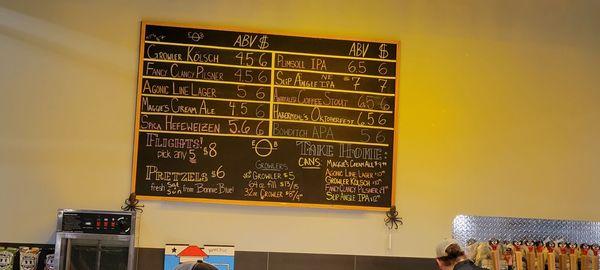 ABV $
GROWLER KÖLSCH 4.5 6
FANCY CLANCY PILSNER 4.5 6
AGONIC LINE LAGER 5 6
MAGGIE'S CREAM ALE 4.5 6
SPICA HEFEWEIZEN 5.6 6
FLIGHTS!
pick any 5 $8
PRETZELS $6
fresh Sat Sun from Bonnie Blue!
ABV $
PLIMSOLL IPA 6.5 6
SLIP ANGLE NE IPA 7 7
COFFEE STOUT 6.5 6
HABERMEHL'S OKTOBERFEST 6.5 6
BOWDITCH APA 5 6
E B
GROWLERS
GROWLER $5
64oz fill $13/15
32oz CROWLER $8/9
TAKE HOME:
CANS
MAGGIE'S CREAM ALE
AGONIC LINE LAGER
GROWLER KÖLSCH
FANCY CLANCY PILSNER
SLIP ANGLE IPA